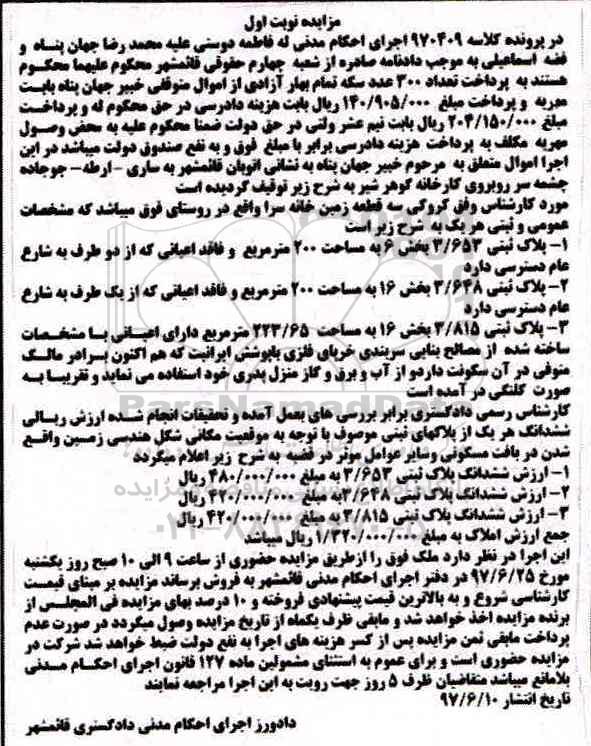 مزایده نوبت اول
در پرونده کلاسه ۹۷۰۴۰۹ اجرای احکام مدنی له فاطمه دوستی علیه محمد رضا جهان پناه و
فضه اسماعیلی به موجب دادنامه صادره از شعبه چهارم حقوقی قائمشهر محکوم علیهما محکوم
هستند به پرداخت تعداد ۳۰۰ عدد سکه تمام بهار آزادی از اموال متوفقی خبیر جهان پناه بابت
مهریه و پرداخت مبلغ ۱۴۰/۹۰۵/۰۰۰ ریال بابت هزینه دادرسی در حق محکوم له و پرداخت
مبلغ ۲۰۴/۱۵۰/۰۰۰ ریال بابت نیم عشر دولتی در حق دولت ضمنا محکوم علیه به محض وصول
مهریه مکلف به پرداخت هزینه دادرسی برابر با مبلغ فوق و به نفع صندوق دولت میباشد در این
اجرا اموال متعلق به مرحوم خبیر جهان پناه به نشانی اتوبان قائمشهر به ساری -ارطه- جوجاده
چشمه سر روبروی کارخانه گوهر شیر به شرح زیر توقیف گردیده است
مورد کارشناس وفق کروکی سه قطعه زمین خانه سرا واقع در روستای فوق میباشد که مشخصات
عمومی و ثبتی هر یک به شرح زیر است
۱- پلاک ثبتی ۳/۶۵۳ بخش ۶ به مساحت ۲۰۰ مترمربع و فاقد اعیانی که از دو طرف به شارع
عام دسترسی دارد
۲- پلاک ثبتی ۳/۶۴۸ بخش ۱۶ به مساحت ۲۰۰ مترمربع و فاقد اعیانی که از یک طرف به شارع
عام دسترسی دارد
۳- پلاک ثبتی ۳/۸۱۵ بخش ۱۶ به مساحت ۲۲۳/۶۵ مترمربع دارای اعیانی با مشخصات
ساخته شده از مصالح بنایی سربندی خرپای فلزی باپوشش ایرانیت که هم اکنون برادر مالک
متوفی در آن سکونت داردو از آب و برق و گاز منزل پدری خود استفاده می نماید و تقریبا به
صورت کلنگی در آمده است
کارشناس رسمی دادگستری برابر بررسی های بعمل آمده و تحقیقات انجام شده ارزش ریالی
ششدانگ هر یک از پلاکهای ثبتی موصوف با توجه به موقعیت مکانی شکل هندسی زمین واقع
شدن در بافت مسکونی وسایر عوامل موثر در قضیه به شرح زیر اعلام میگردد
۱- ارزش ششدانگ پلاک ثبتی ۳/۶۵۳ به مبلغ ۴۸۰/۰۰۰/۰۰۰ ریال
۲- ارزش ششدانگ پلاک ثبتی ۳/۶۴۸به مبلغ ۴۲۰/۰۰۰/۰۰۰ ریال
۳- ارزش ششدانگ پلاک ثبتی ۳/۸۱۵ به مبلغ ۴۲۰/۰۰۰/۰۰۰ ریال
جمع ارزش املاک به مبلغ ۱/۳۲۰/۰۰۰/۰۰۰ ریال میباشد
این اجرا در نظر دارد ملک فوق را ازطریق مزایده حضوری از ساعت ۹ الی ۱۰ صبح روز یکشنبه
مورخ ۹۷/۶/۲۵ در دفتر اجرای احکام مدنی قائمشهر به فروش برساند مزایده بر مبنای قیمت
کارشناسی شروع و به بالاترین قیمت پیشنهادی فروخته و ۱۰ درصد بهای مزایده فی المجلس از
برنده مزایده اخذ خواهد شد و مابقی ظرف یکماه از تاریخ مزایده وصول میگردد در صورت عدم
پرداخت مابقی ثمن مزایده پس از کسر هزینه های اجرا به نفع دولت ضبط خواهد شد شرکت در
مزایده حضوری است و برای عموم به استثنای مشمولین ماده ۱۲۷ قانون اجرای احکام مدنی
بلامانع میباشد متقاضیان ظرف ۵ روز جهت رویت به این اجرا مراجعه نمایند
تاریخ انتشار ۹۷/۶/۱۰
دادورز اجرای احکام مدنی دادگستری قائمشهر
ParsNamadData